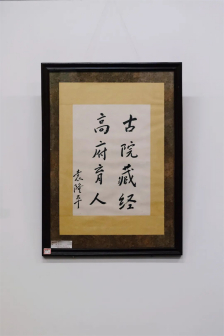 古院藏经
高府育人
袁隆平